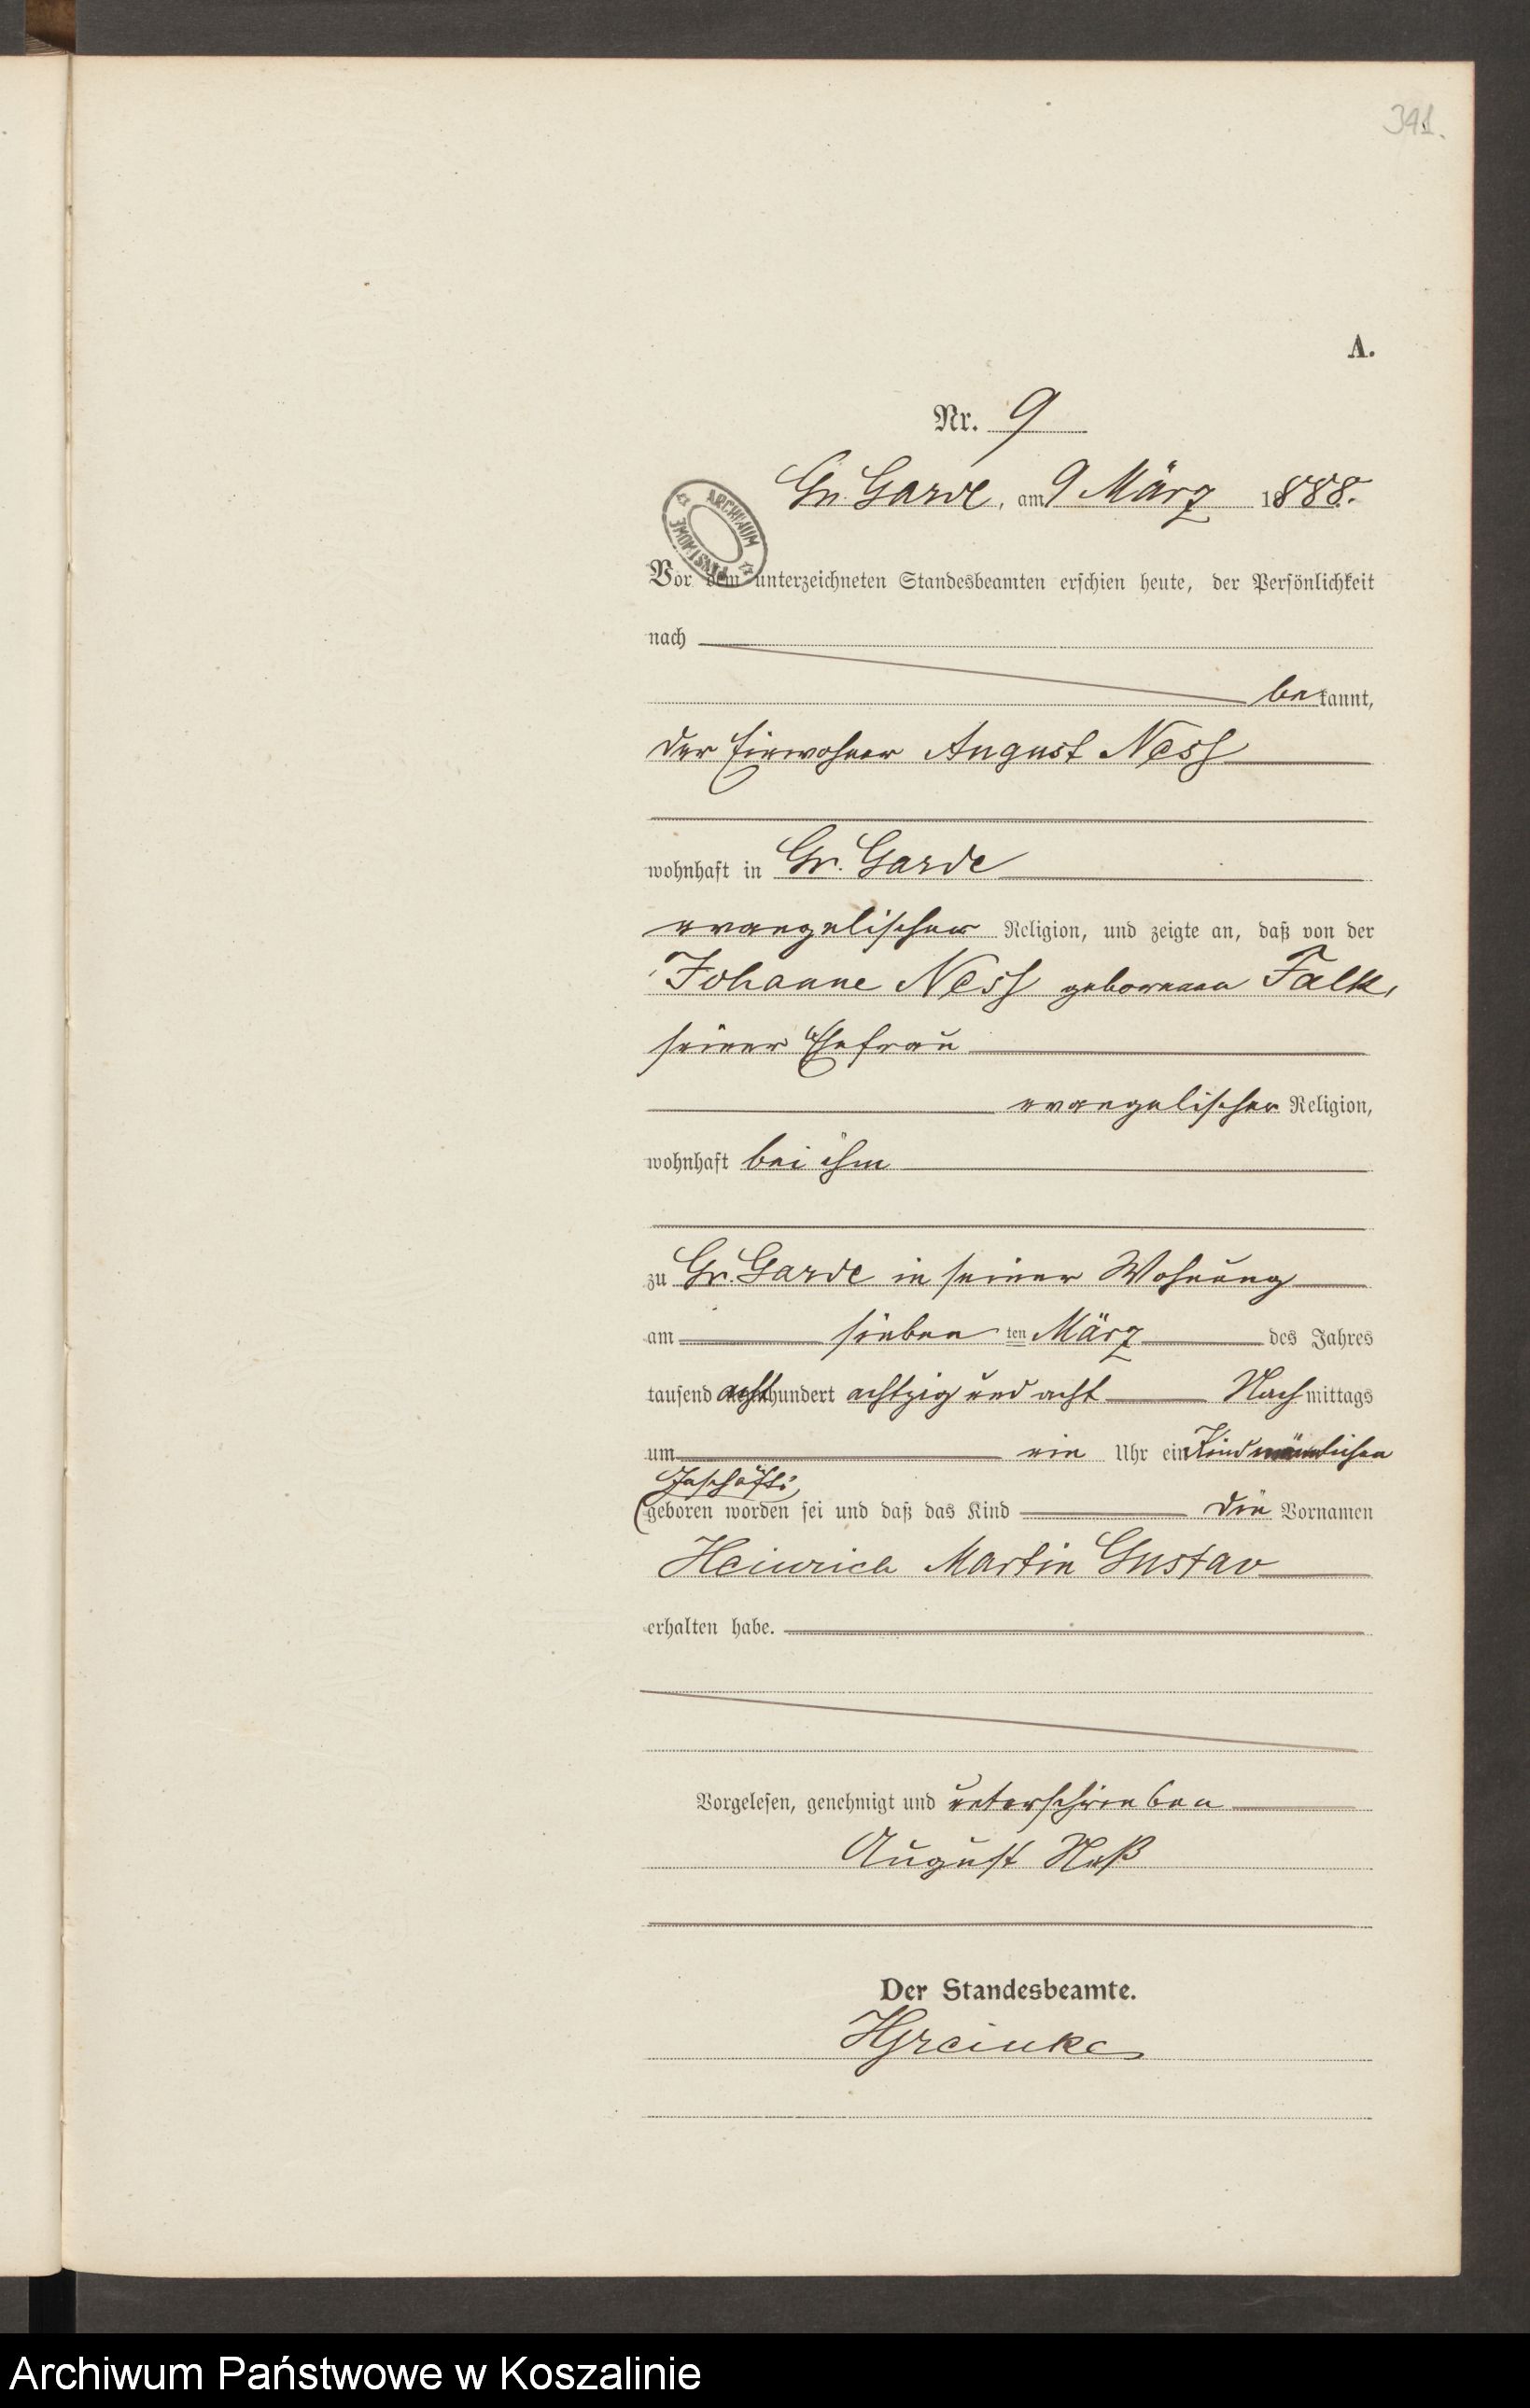 391.
A.
Nr. 9
Gr. Garde, am 9 März 1888.
ARCHIWUM PAŃSTWOWE
Vor dem unterzeichneten Standesbeamten erschien heute, der Persönlichkeit
nach
bekannt,
der Einwohner August Ness
wohnhaft in Gr. Garde
evangelischer Religion, und zeigte an, daß von der
Johanne Ness geborenen Falk,
seiner Ehefrau
evangelischer Religion,
wohnhaft bei ihm
zu Gr. Garde in seiner Wohnung
am sieben ten März des Jahres
tausend acht hundert achtzig und acht Nachmittags
um ein Uhr ein Kind männlichen
Geschlechts
geboren worden sei und daß das Kind die Vornamen
Heinrich Martin Gustav
erhalten habe.
Vorgelesen, genehmigt und unterschrieben
August Neß
Der Standesbeamte.
Archiwum Państwowe w Koszalinie